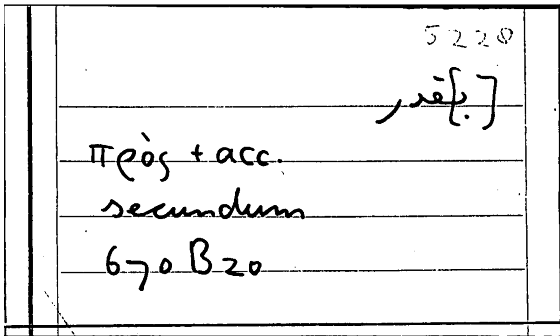 5220
πρὸς + acc.
secundum
670 B 20